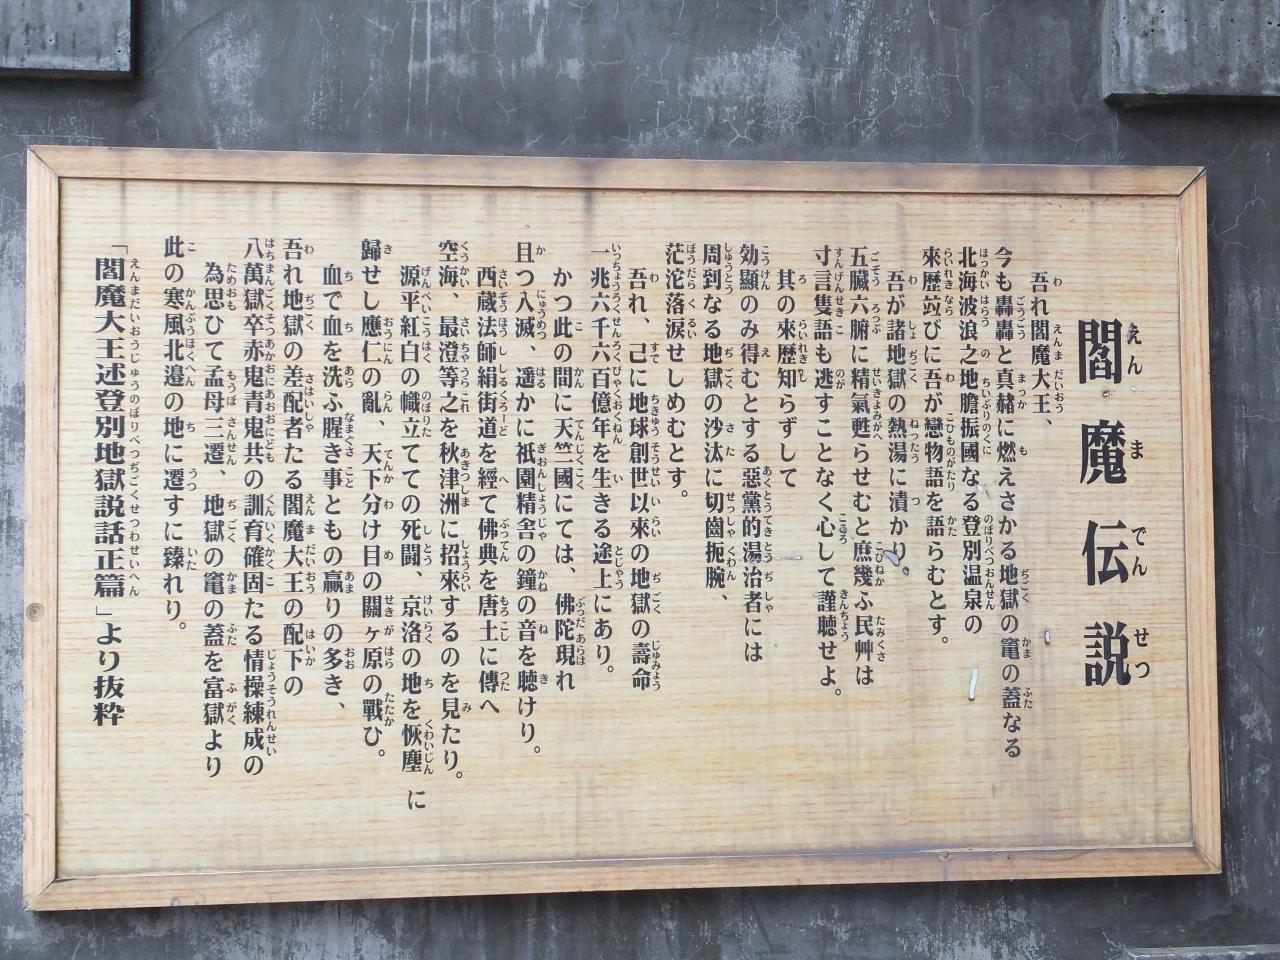 閻魔伝説
吾れ閻魔大王、
今も轟轟と真赭に燃えさかる地獄の竃の蓋なる
北海波浪之地膽振國なる登別温泉の
來歴竝びに吾が戀物語を語らむとす。
吾が諸地獄の熱湯に漬かり、
五臓六腑に精氣甦らせむと庶幾ふ民艸は
寸言隻語も逃すことなく心して謹聴せよ。
其の來歴知らずして
効顯のみ得むとする惡黨的湯治者には
周到なる地獄の沙汰に切齒扼腕、
茫沱落涙せしめむとす。
吾れ、己に地球創世以來の地獄の壽命
一兆六千六百億年を生きる途上にあり。
かつ此の間に天竺國にては、佛陀現れ
且つ入滅 遥かに祇園精舎の鐘の音を聴けり。
西蔵法師絹街道を經て佛典を唐土に傳へ
空海、最澄等之を秋津洲に招來するのを見たり。
源平紅白の幟立てての死闘、京洛の地を恢塵に
歸せし應仁の亂、天下分け目の關ヶ原の戰ひ。
血で血を洗ふ腥き事ともの贏りの多き、
吾れ地獄の差配者たる閻魔大王の配下の
八萬獄卒赤鬼青鬼共の訓育確固たる情操練成の
為思ひて孟母三遷、地獄の竃の蓋を富獄より
此の寒風北邉の地に遷すに臻れり。
「閻魔大王述登別地獄説話正篇」より抜粋